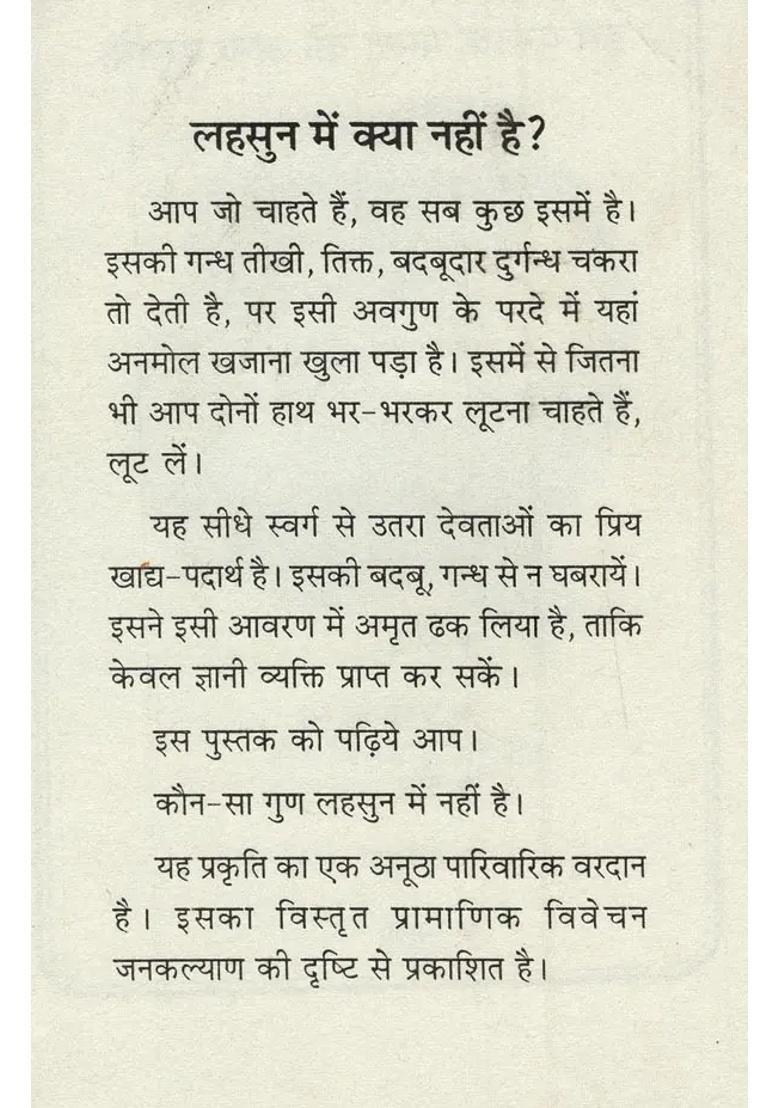 लहसुन में क्या नहीं है?
आप जो चाहते हैं, वह सब कुछ इसमें है।
इसकी गन्ध तीखी, तिक्त, बदबूदार दुर्गन्ध चकरा
तो देती है, पर इसी अवगुण के परदे में यहां
अनमोल खजाना खुला पड़ा है। इसमें से जितना
भी आप दोनों हाथ भर-भरकर लूटना चाहते हैं,
लूट लें।
यह सीधे स्वर्ग से उतरा देवताओं का प्रिय
खाद्य-पदार्थ है। इसकी बदबू, गन्ध से न घबरायें।
इसने इसी आवरण में अमृत ढक लिया है, ताकि
केवल ज्ञानी व्यक्ति प्राप्त कर सकें।
इस पुस्तक को पढ़िये आप।
कौन-सा गुण लहसुन में नहीं है।
यह प्रकृति का एक अनूठा पारिवारिक वरदान
है। इसका विस्तृत प्रामाणिक विवेचन
जनकल्याण की दृष्टि से प्रकाशित है।